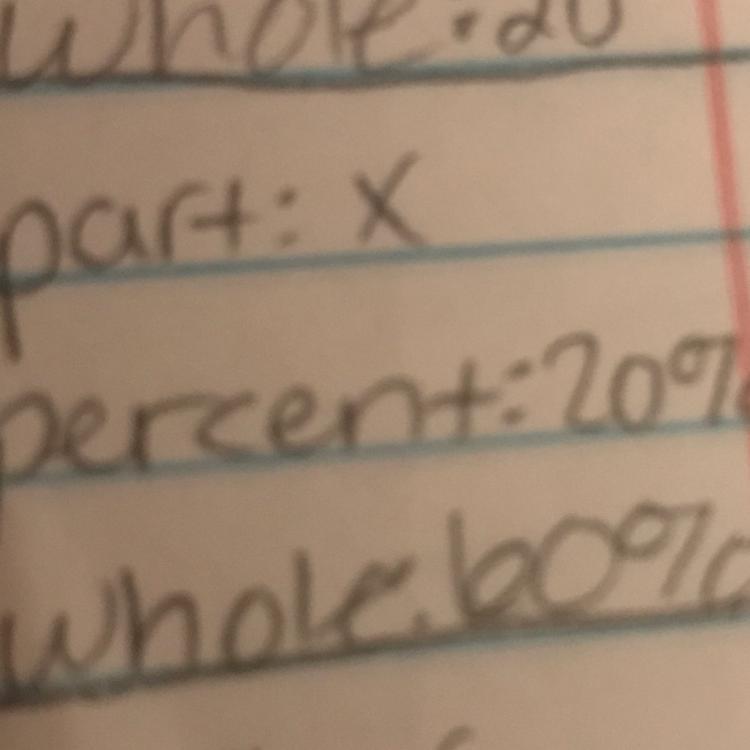 whole: 20
part: x
percent: 20%
whole: 60%